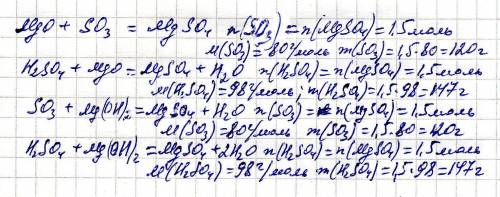 MgO + SO₃ = MgSO₄ n(SO₃) = n(MgSO₄) = 1,5 моль
M(SO₃) = 80 г/моль m(SO₃) = 1,5·80 = 120 г
H₂SO₄ + MgO = MgSO₄ + H₂O n(H₂SO₄) = n(MgSO₄) = 1,5 моль
M(H₂SO₄) = 98 г/моль; m(H₂SO₄) = 1,5·98 = 147 г
SO₃ + Mg(OH)₂ = MgSO₄ + H₂O n(SO₃) = n(MgSO₄) = 1,5 моль
M(SO₃) = 80 г/моль m(SO₃) = 1,5·80 = 120 г
H₂SO₄ + Mg(OH)₂ = MgSO₄ + 2H₂O n(H₂SO₄) = n(MgSO₄) = 1,5 моль
M(H₂SO₄) = 98 г/моль m(H₂SO₄) = 1,5·98 = 147 г